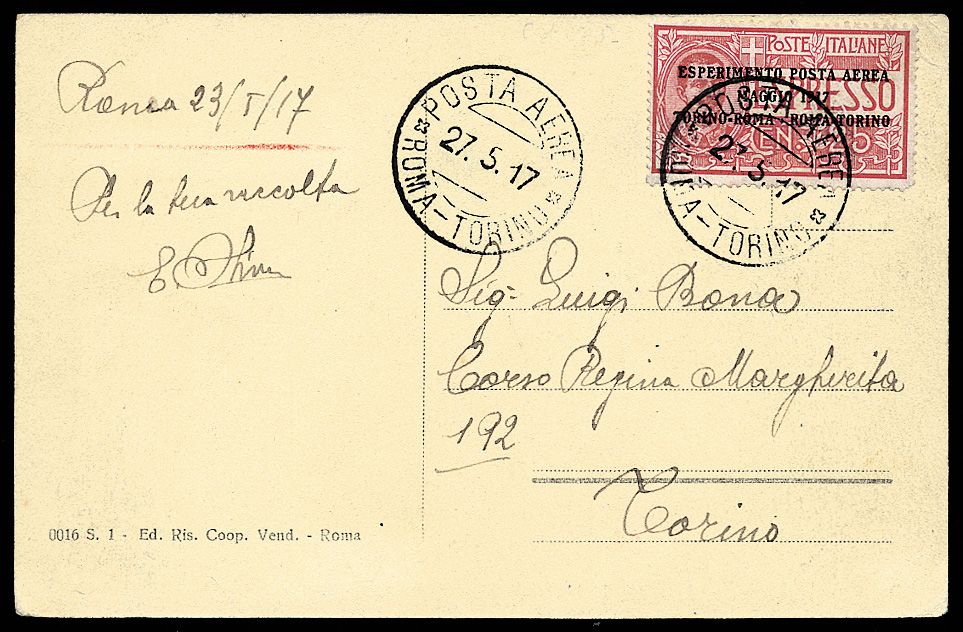 Roma 23/5/17
Per la tua raccolta
POSTA AEREA
27.5.17
ROMA-TORINO
POSTE ITALIANE
ESPRESSO
CENT. 25
ESPERIMENTO POSTA AEREA
MAGGIO 1917
TORINO-ROMA · ROMA-TORINO
POSTA AEREA
27.5.17
ROMA-TORINO
Sig. Luigi Bona
Corso Regina Margherita
192
Torino
0016 S. 1 - Ed. Ris. Coop. Vend. - Roma